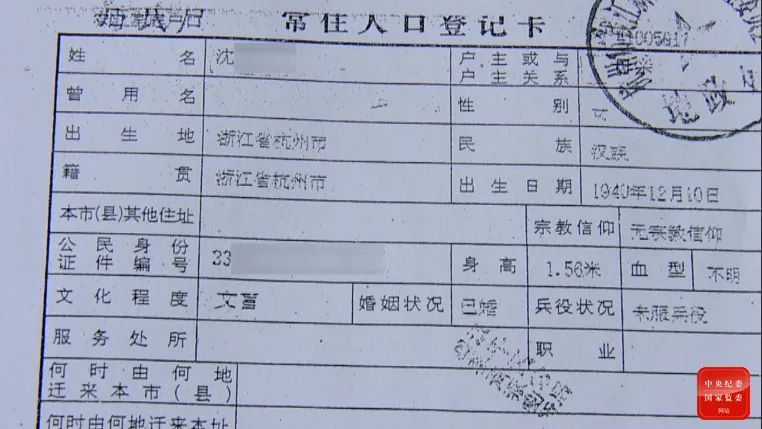 常住人口登记卡
1005817
姓名 沈 户主或与户主关系
曾用名 性别
出生地 浙江省杭州市 民族 汉族
籍贯 浙江省杭州市 出生日期 1940年12月10日
本市(县)其他住址 宗教信仰 无宗教信仰
公民身份证件编号 33 身高 1.56米 血型 不明
文化程度 文盲 婚姻状况 已婚 兵役状况 未服兵役
服务处所 职业
何时由何地迁来本市(县)
何时由何地迁来本址
中央纪委
国家监委
网站